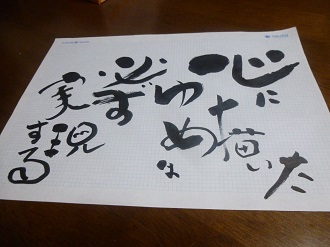 心に
描いた
ゆめは
必ず
実現
する